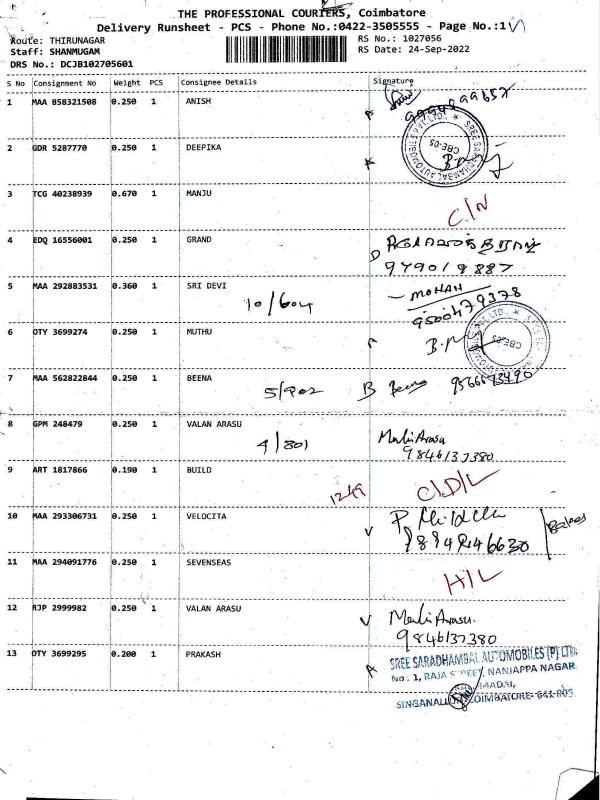 THE PROFESSIONAL COURIERS, Coimbatore
Delivery Runsheet - PCS - Phone No.:0422-3505555 - Page No.:1
Route: THIRUNAGAR
RS No.: 1027056
Staff: SHANMUGAM
RS Date: 24-Sep-2022
DRS No.: DCJB102705601
S No Consignment No Weight PCS Consignee Details Signature
1 MAA 858321508 0.250 1 ANISH
2 GDR 5287770 0.250 1 DEEPIKA
3 TCG 40238939 0.670 1 MANJU C/N
4 EDQ 16556001 0.250 1 GRAND
5 MAA 292883531 0.360 1 SRI DEVI
10/604 MOHAN
9500479378
6 OTY 3699274 0.250 1 MUTHU
7 MAA 562822844 0.250 1 BEENA
5/902 B Beena
8 GPM 248479 0.250 1 VALAN ARASU
4/801
9846137380
9 ART 1817866 0.190 1 BUILD
1249 C/D/L
10 MAA 293306731 0.250 1 VELOCITA
11 MAA 294091776 0.250 1 SEVENSEAS
H/L
12 RJP 2999982 0.250 1 VALAN ARASU
9846137380
13 OTY 3699295 0.200 1 PRAKASH
SREE SARADHAMBAL AUTOMOBILES (P) LTD,
No : 1, RAJA STREET, NANJAPPA NAGAR
SINGANALLUR, COIMBATORE- 641 005